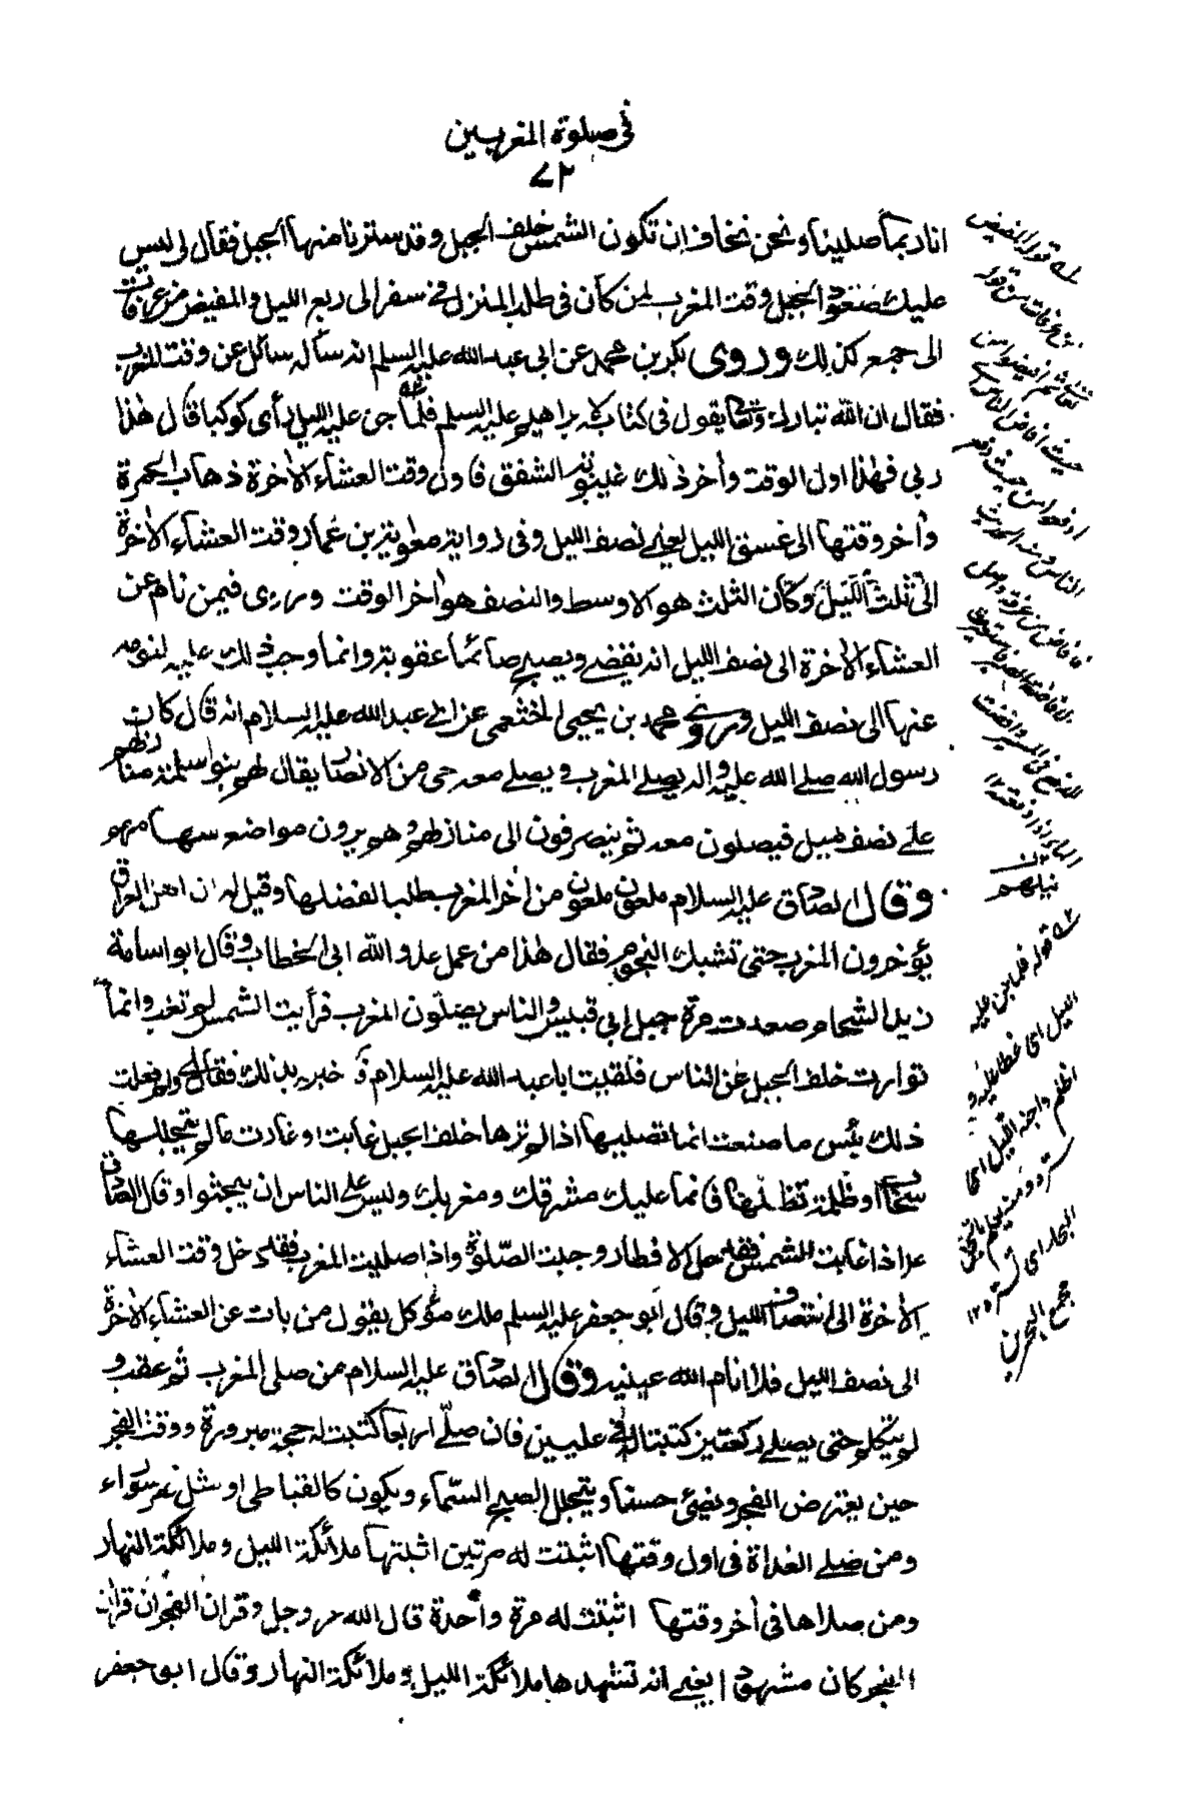 في صلوة المغربين
٧٢
انا ربما صلينا ونحن نخاف ان تكون الشمس خلف الجبل وقد سترنا منها الجبل فقال لي ليس
عليك صعود الجبل وقت المغرب لمن كان في طلب المنزل في سفر الى ربع الليل والمفيض من عرفات
الى جمع كذلك وروى بكر بن محمد عن ابي عبد الله عليه السلم انه سأله سائل عن وقت المغرب
فقال ان الله تبارك وتعا يقول في كتابه لابراهيم عليه السلم فلما جن عليه الليل رأى كوكبا قال هذا
ربي فهذا اول الوقت وأخر ذلك غيبوبة الشفق فاول وقت العشاء الأخرة ذهاب الحمرة
وأخر وقتها الى غسق الليل يعني نصف الليل وفي رواية معوية بن عمار وقت العشاء الأخرة
الى ثلث الليل وكأن الثلث هو الاوسط والنصف هو أخر الوقت وروى فيمن نام عن
العشاء الأخرة الى نصف الليل انه يقضي ويصبح صائما عقوبة وانما وجب ذلك عليه لنومه
عنها الى نصف الليل وروى محمد بن يحيى الخثعمي عن ابي عبد الله عليه السلام انه قال كان
رسول الله صلى الله عليه واله يصلي المغرب ويصلي معه حي من الانصار يقال لهم بنو سلمة منازلهم
على نصف ميل فيصلون معه ثم ينصرفون الى منازلهم وهم يرون مواضع سهامهم
وقال الصادق عليه السلام ملعون ملعون من أخر المغرب طلبا لفضلها وقيل له ان اهل العراق
يؤخرون المغرب حتى تشبك النجوم فقال هذا من عمل عدو الله ابي الخطاب وقال ابو اسامة
زيد الشحام صعدت مرة جبل ابي قبيس والناس يصلون المغرب فرأيت الشمس لم تغب وانما
توارت خلف الجبل عن الناس فلقيت ابا عبد الله عليه السلام فاخبرته بذلك فقال لي ولم فعلت
ذلك بئس ما صنعت انما تصليها اذا لم ترها خلف الجبل غابت او غارت ما لم يتجللها
سحاب او ظلمة تظلها فانما عليك مشرقك ومغربك وليس على الناس ان يبحثوا وقال الصادق
ع اذا غابت الشمس فقد حل الافطار ووجبت الصلوة واذا صليت المغرب فقد دخل وقت العشاء
الأخرة الى انتصاف الليل وقال ابو جعفر عليه السلم ملك مؤكل يقول من بات عن العشاء الأخرة
الى نصف الليل فلا انام الله عينيه وقال الصادق عليه السلام من صلى المغرب ثم عقب و
لم يتكلم حتى يصلي ركعتين كتبتا له في عليين فان صلى اربعا كتبت له حجة مبرورة ووقت الفجر
حين يعترض الفجر ويضئ حسنا ويتجلل الصبح السماء ويكون كالقباطي او مثل نهر سوراء
ومن صلى الغداة في اول وقتها اثبتت له مرتين اثبتها ملائكة الليل وملائكة النهار
ومن صلاها في أخر وقتها اثبتت له مرة واحدة قال الله عز وجل وقرأن الفجر ان قرأن
الفجر كان مشهودا يعني انه تشهدها ملائكة الليل وملائكة النهار وقال ابو جعفر
له قوله المفيض
حيث افاض الناس
نبلهم
قوله فلما جن عليه
الليل اي غطا عليه و
اظلم واجنه الليل اي
مجمع البحرين